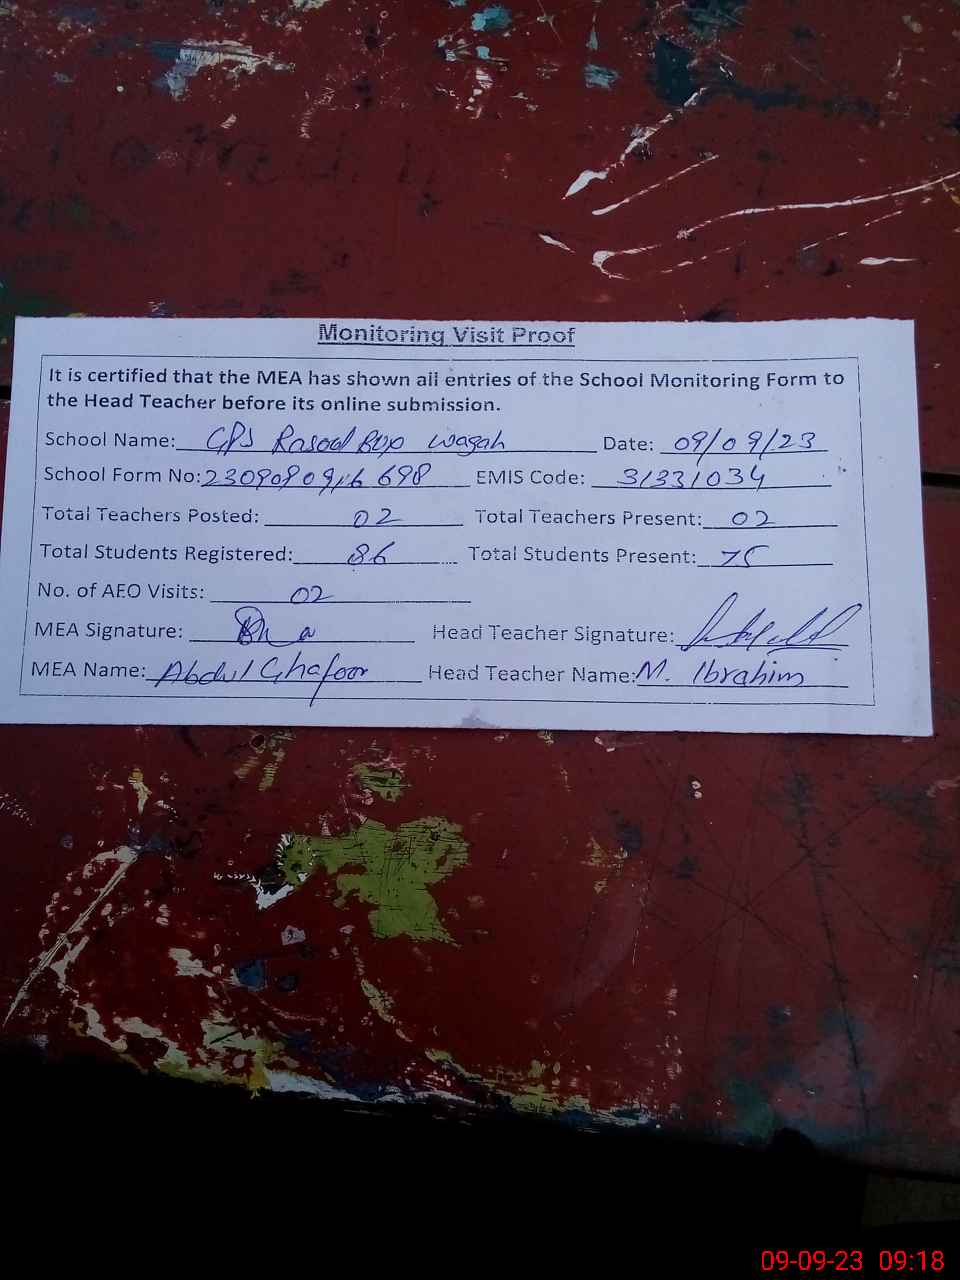 Monitoring Visit Proof
It is certified that the MEA has shown all entries of the School Monitoring Form to
the Head Teacher before its online submission.
School Name: GPS Rasool Bux Wagah Date: 09/09/23
School Form No: EMIS Code: 31331034
Total Teachers Posted: 02 Total Teachers Present: 02
Total Students Registered: 86 Total Students Present: 75
No. of AEO Visits: 02
MEA Signature: Head Teacher Signature:
MEA Name: Abdul Ghafoor Head Teacher Name: M. Ibrahim
09-09-23 09:18